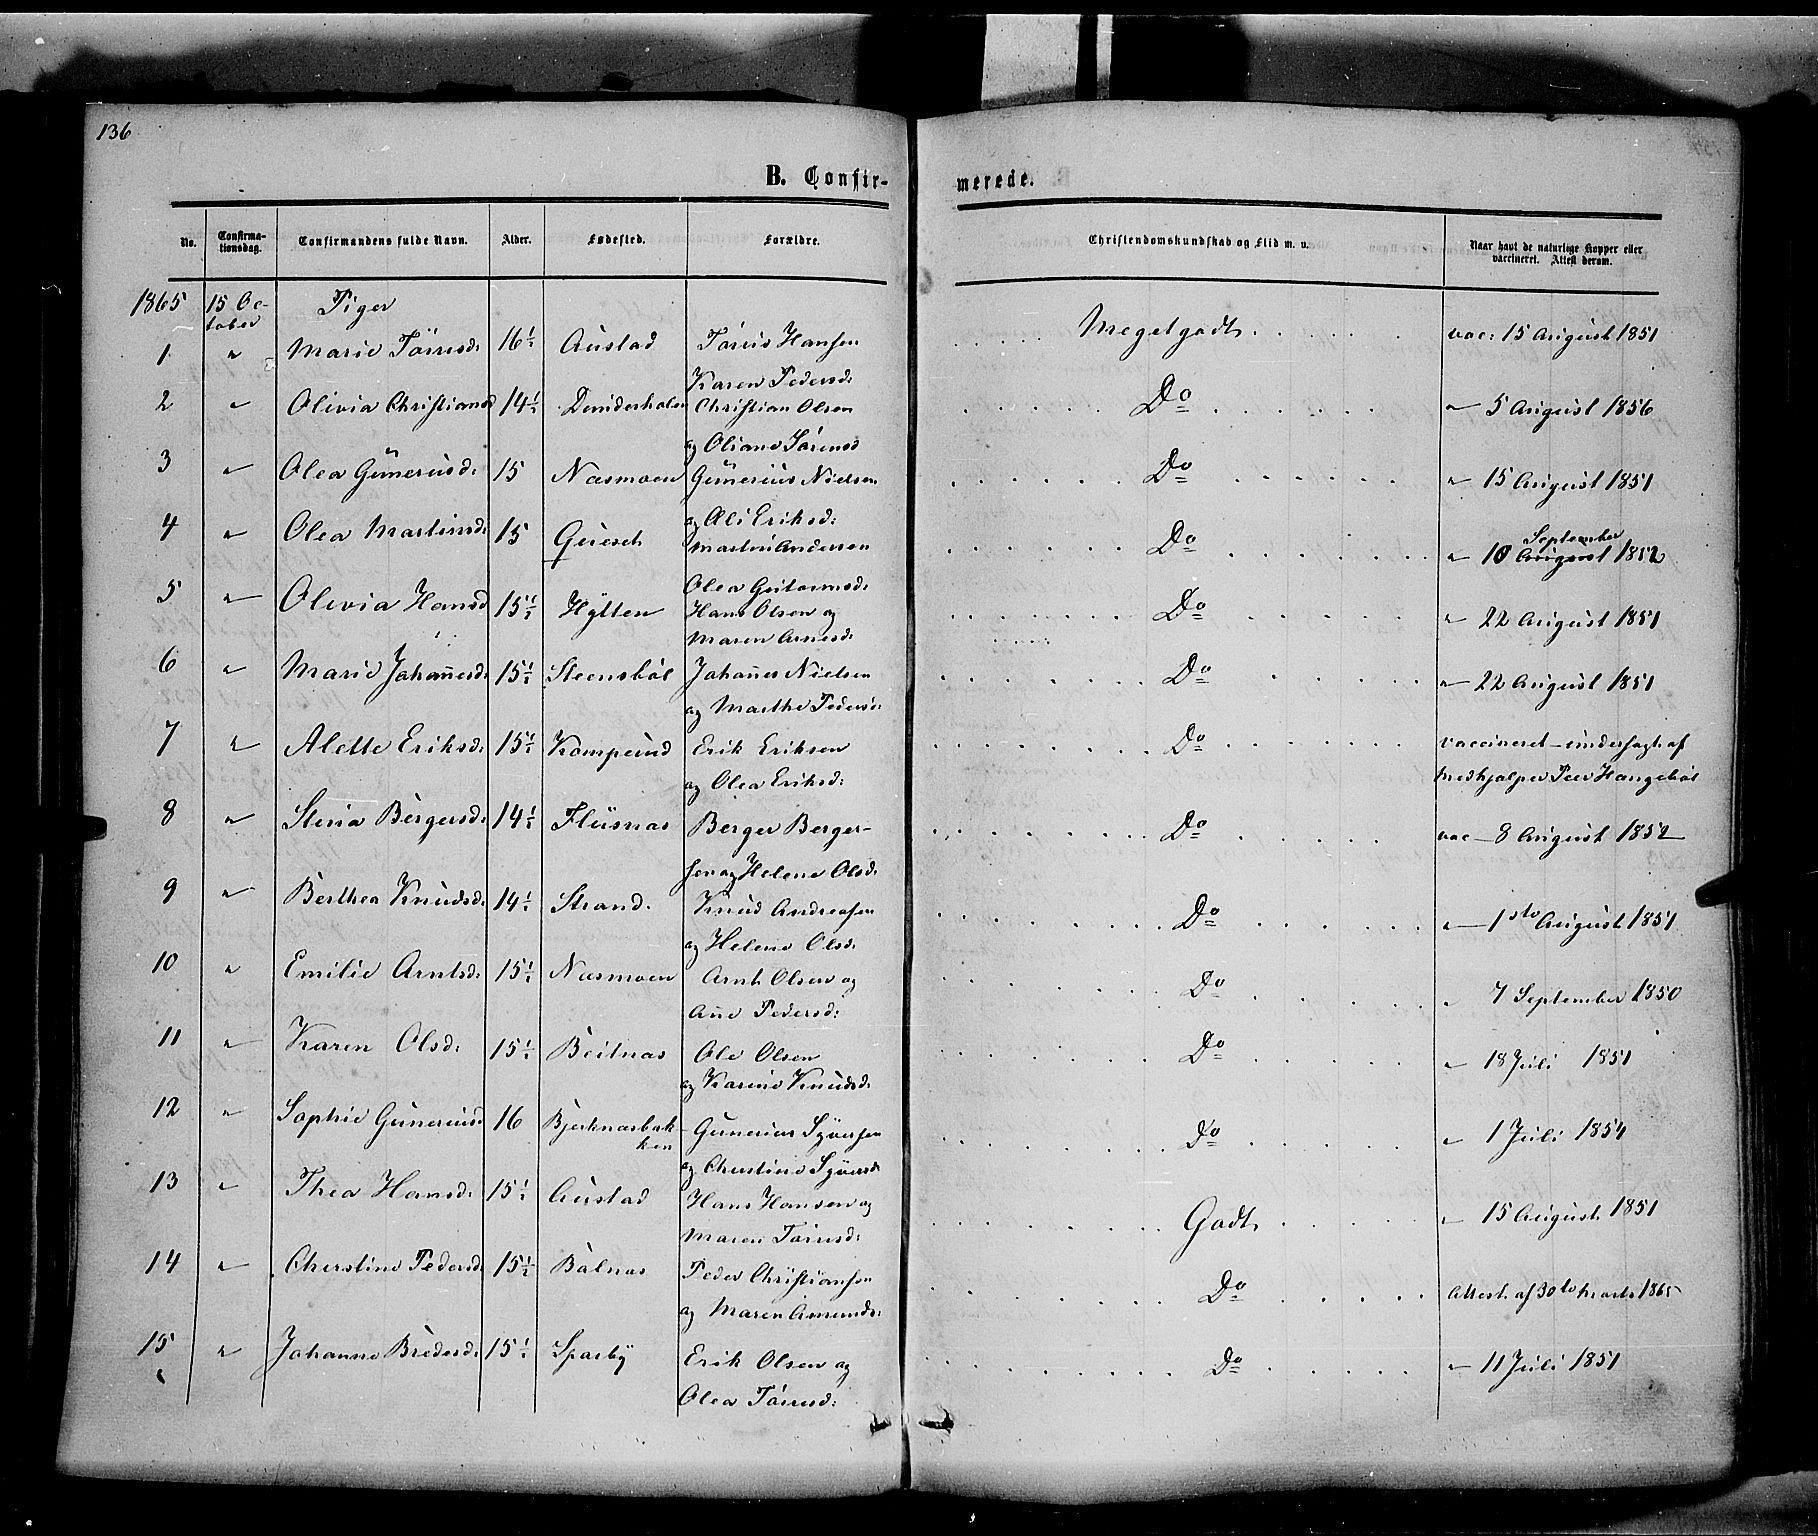 136
B. Confir-
merede.
No. Confirma-tionsdag. Confirmandens fulde Navn. Alder. Fødested. Forældre. Christendomskundskab og Flid m. v. Naar havt de naturlige Kopper eller vaccineret. Attest derom.
1865 15 Oc-tober Piger
1 " Marie Törrisd: 16½ Austad Törris Hansen Karen Pedersd: Megetgodt vac: 15 August 1851
2 " Olivia Christiansd 14½ Christian Olsen og Oliane Sörensd Do " 5 August 1856
3 " Olea Gunneriusd: 15 Næsmoen Gunnerius Nielsen og Eli Eriksd: Do " 15 August 1851
4 " Olea Martinsd: 15 Martin Andersen Olea Guttormsd: Do " 10 August September 1852
5 " Olivia Hansd 15½ Hytten Hans Olsen og Maren Arnesd: Do " 22 August 1851
6 " Marie Johannesd: 15½ Steensböl Johannes Nielsen og Marthe Pedersd: Do " 22 August 1851
7 " Alette Eriksd: 15½ Kompeund Erik Eriksen og Olea Eriksd: Do vaccineret – undersøgt af Medhjelper Peer Haugsböl
8 " Stina Bergersd: 14½ Flusnæs Berger Berger-sen og Helene Olsd: Do vac – 8 August 1852
9 " Berthea Knudsd: 14½ Strand. Knud Andreasen og Helene Olsd: Do " 1ste August 1851
10 " Emilie Arntsd: 15½ Næsmoen Arnt Olsen og Ane Pedersd: Do " 7 September 1850
11 " Karen Olsd: 15½ Beitnæs Ole Olsen og Karine Knudsd: Do " 18 Juli 1851
12 " Sophie Gunneriusd 16 Bjerknæsbak-ken Gunnerius Syversen og Cherstine Syversd: Do " 1 Juli 1854
13 " Thea Hansd: 15½ Austad Hans Hansen og Maren Törrisd: Godt " 15 August 1851
14 " Cherstine Pedersd: 15½ Balnæs Peder Christiansen og Maren Amundsd: Do Attest af 30te Marts 1865
15 " Johanne Bredesd: 15½ Sparby Erik Olsen og Olea Törrisd: Do " 11 Juli 1851